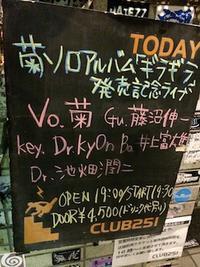 TODAY
菊ソロアルバム「ギラギラ」
発売記念ライブ
Vo.菊 Gu.藤沼伸一
key.Dr.kyOn Ba.井上富雄
Dr.池畑潤二
OPEN 19:00/START 19:30
DOOR ¥4,500(ドリンク代別)
CLUB251